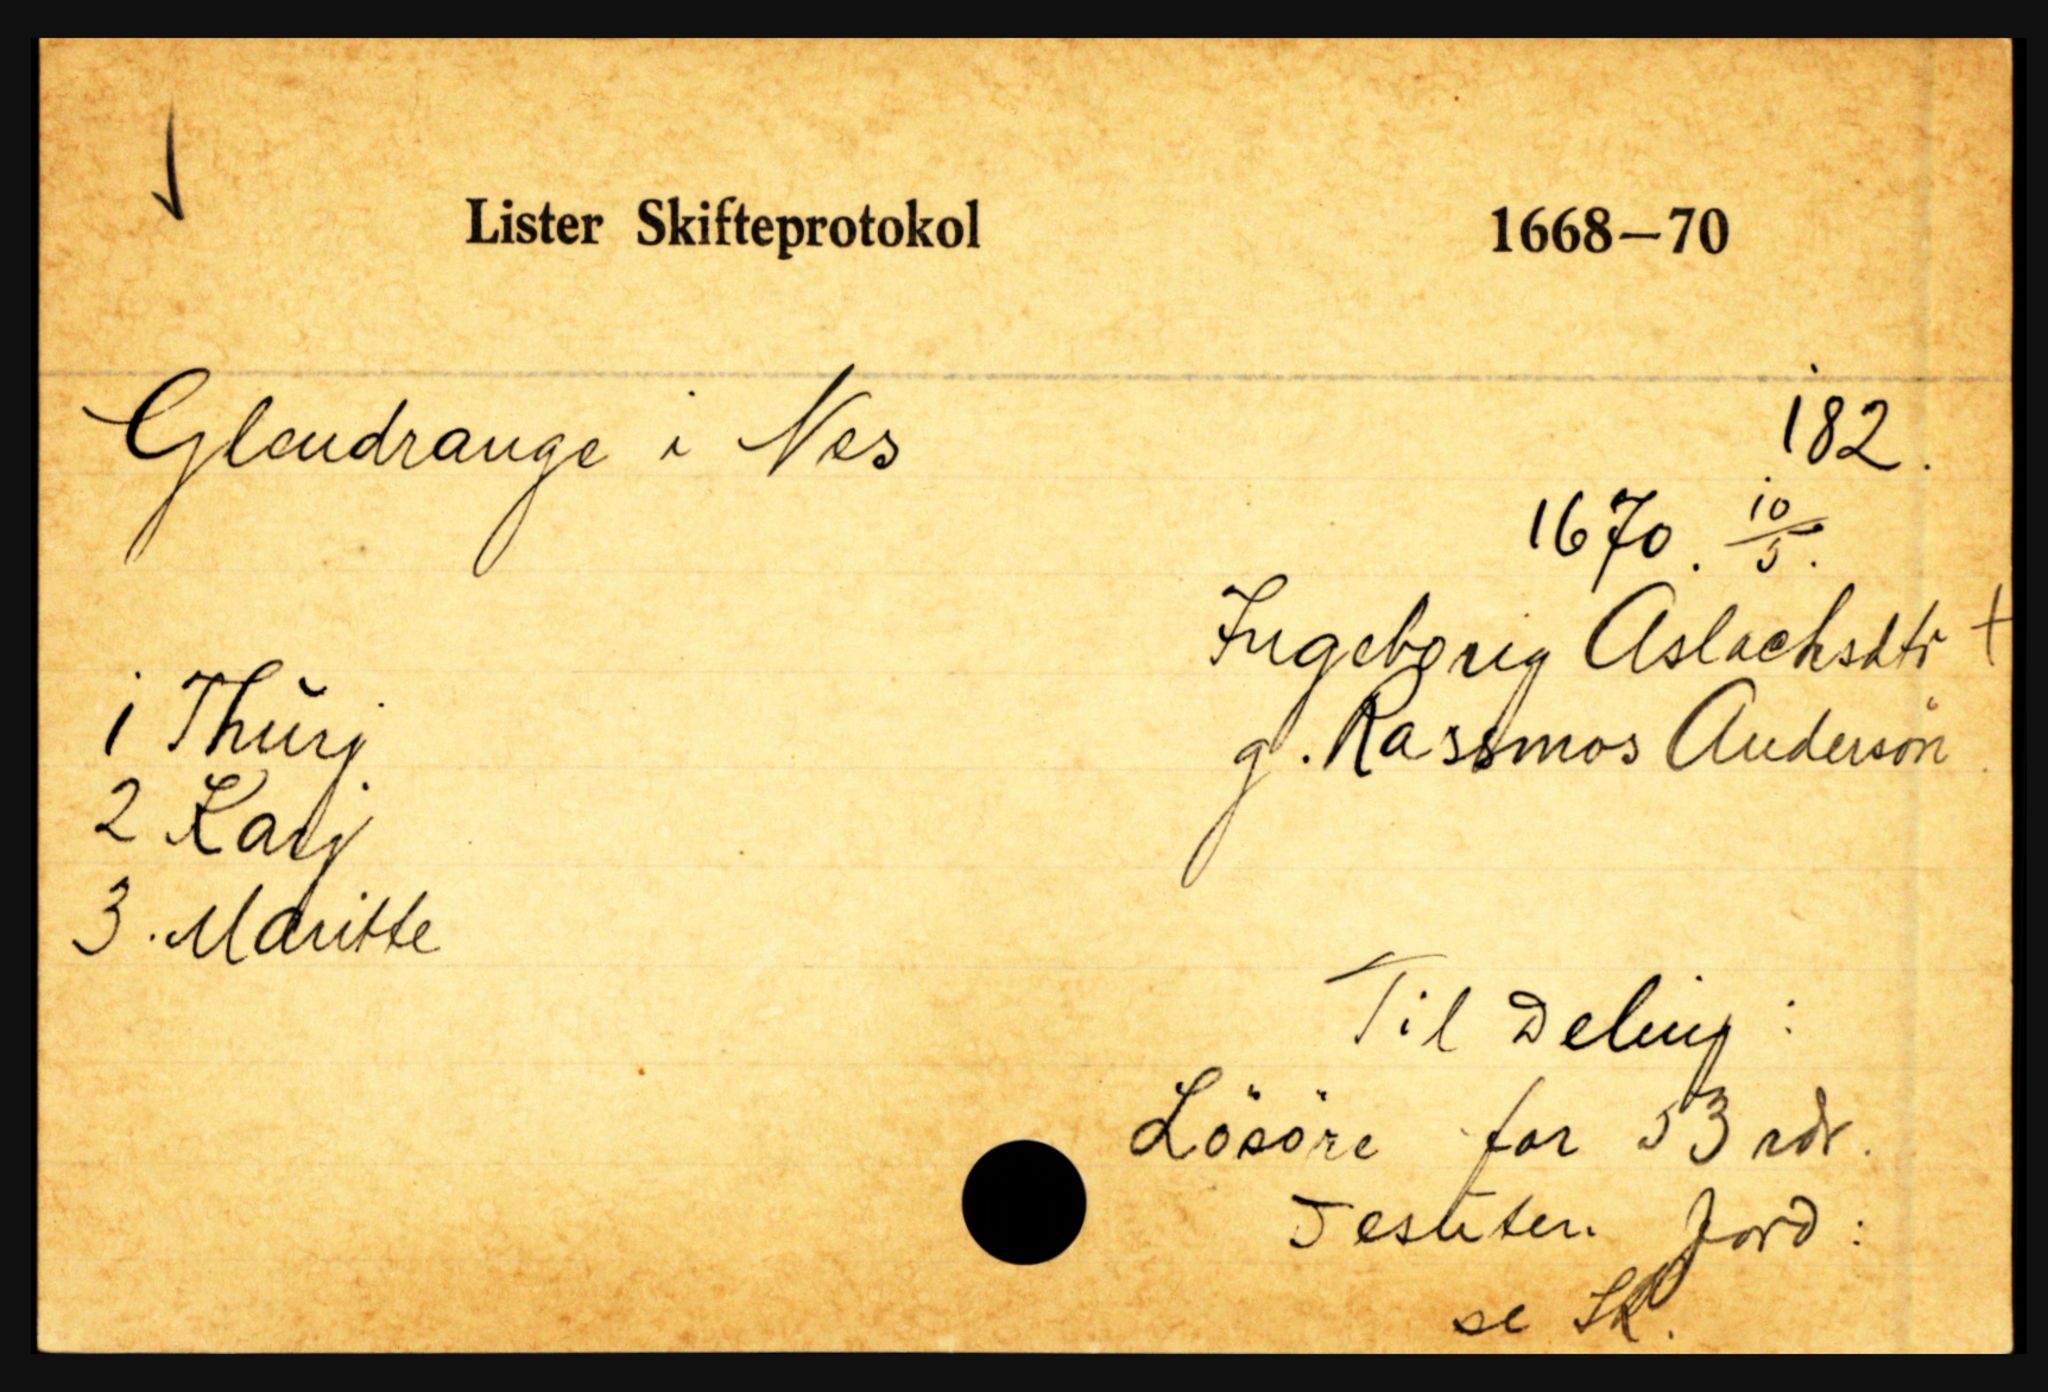 Lister Skifteprotokol 1668—70
Glendrange i Nes
182.
1670. 10/5.
Ingeborig Aslachsdtr +
g. Rassmos Anderson
1 Thurj
2 Karj
3. Maritte
Til Deling:
Lösöre for 53 rdr.
Desuten Jord:
se Sk.